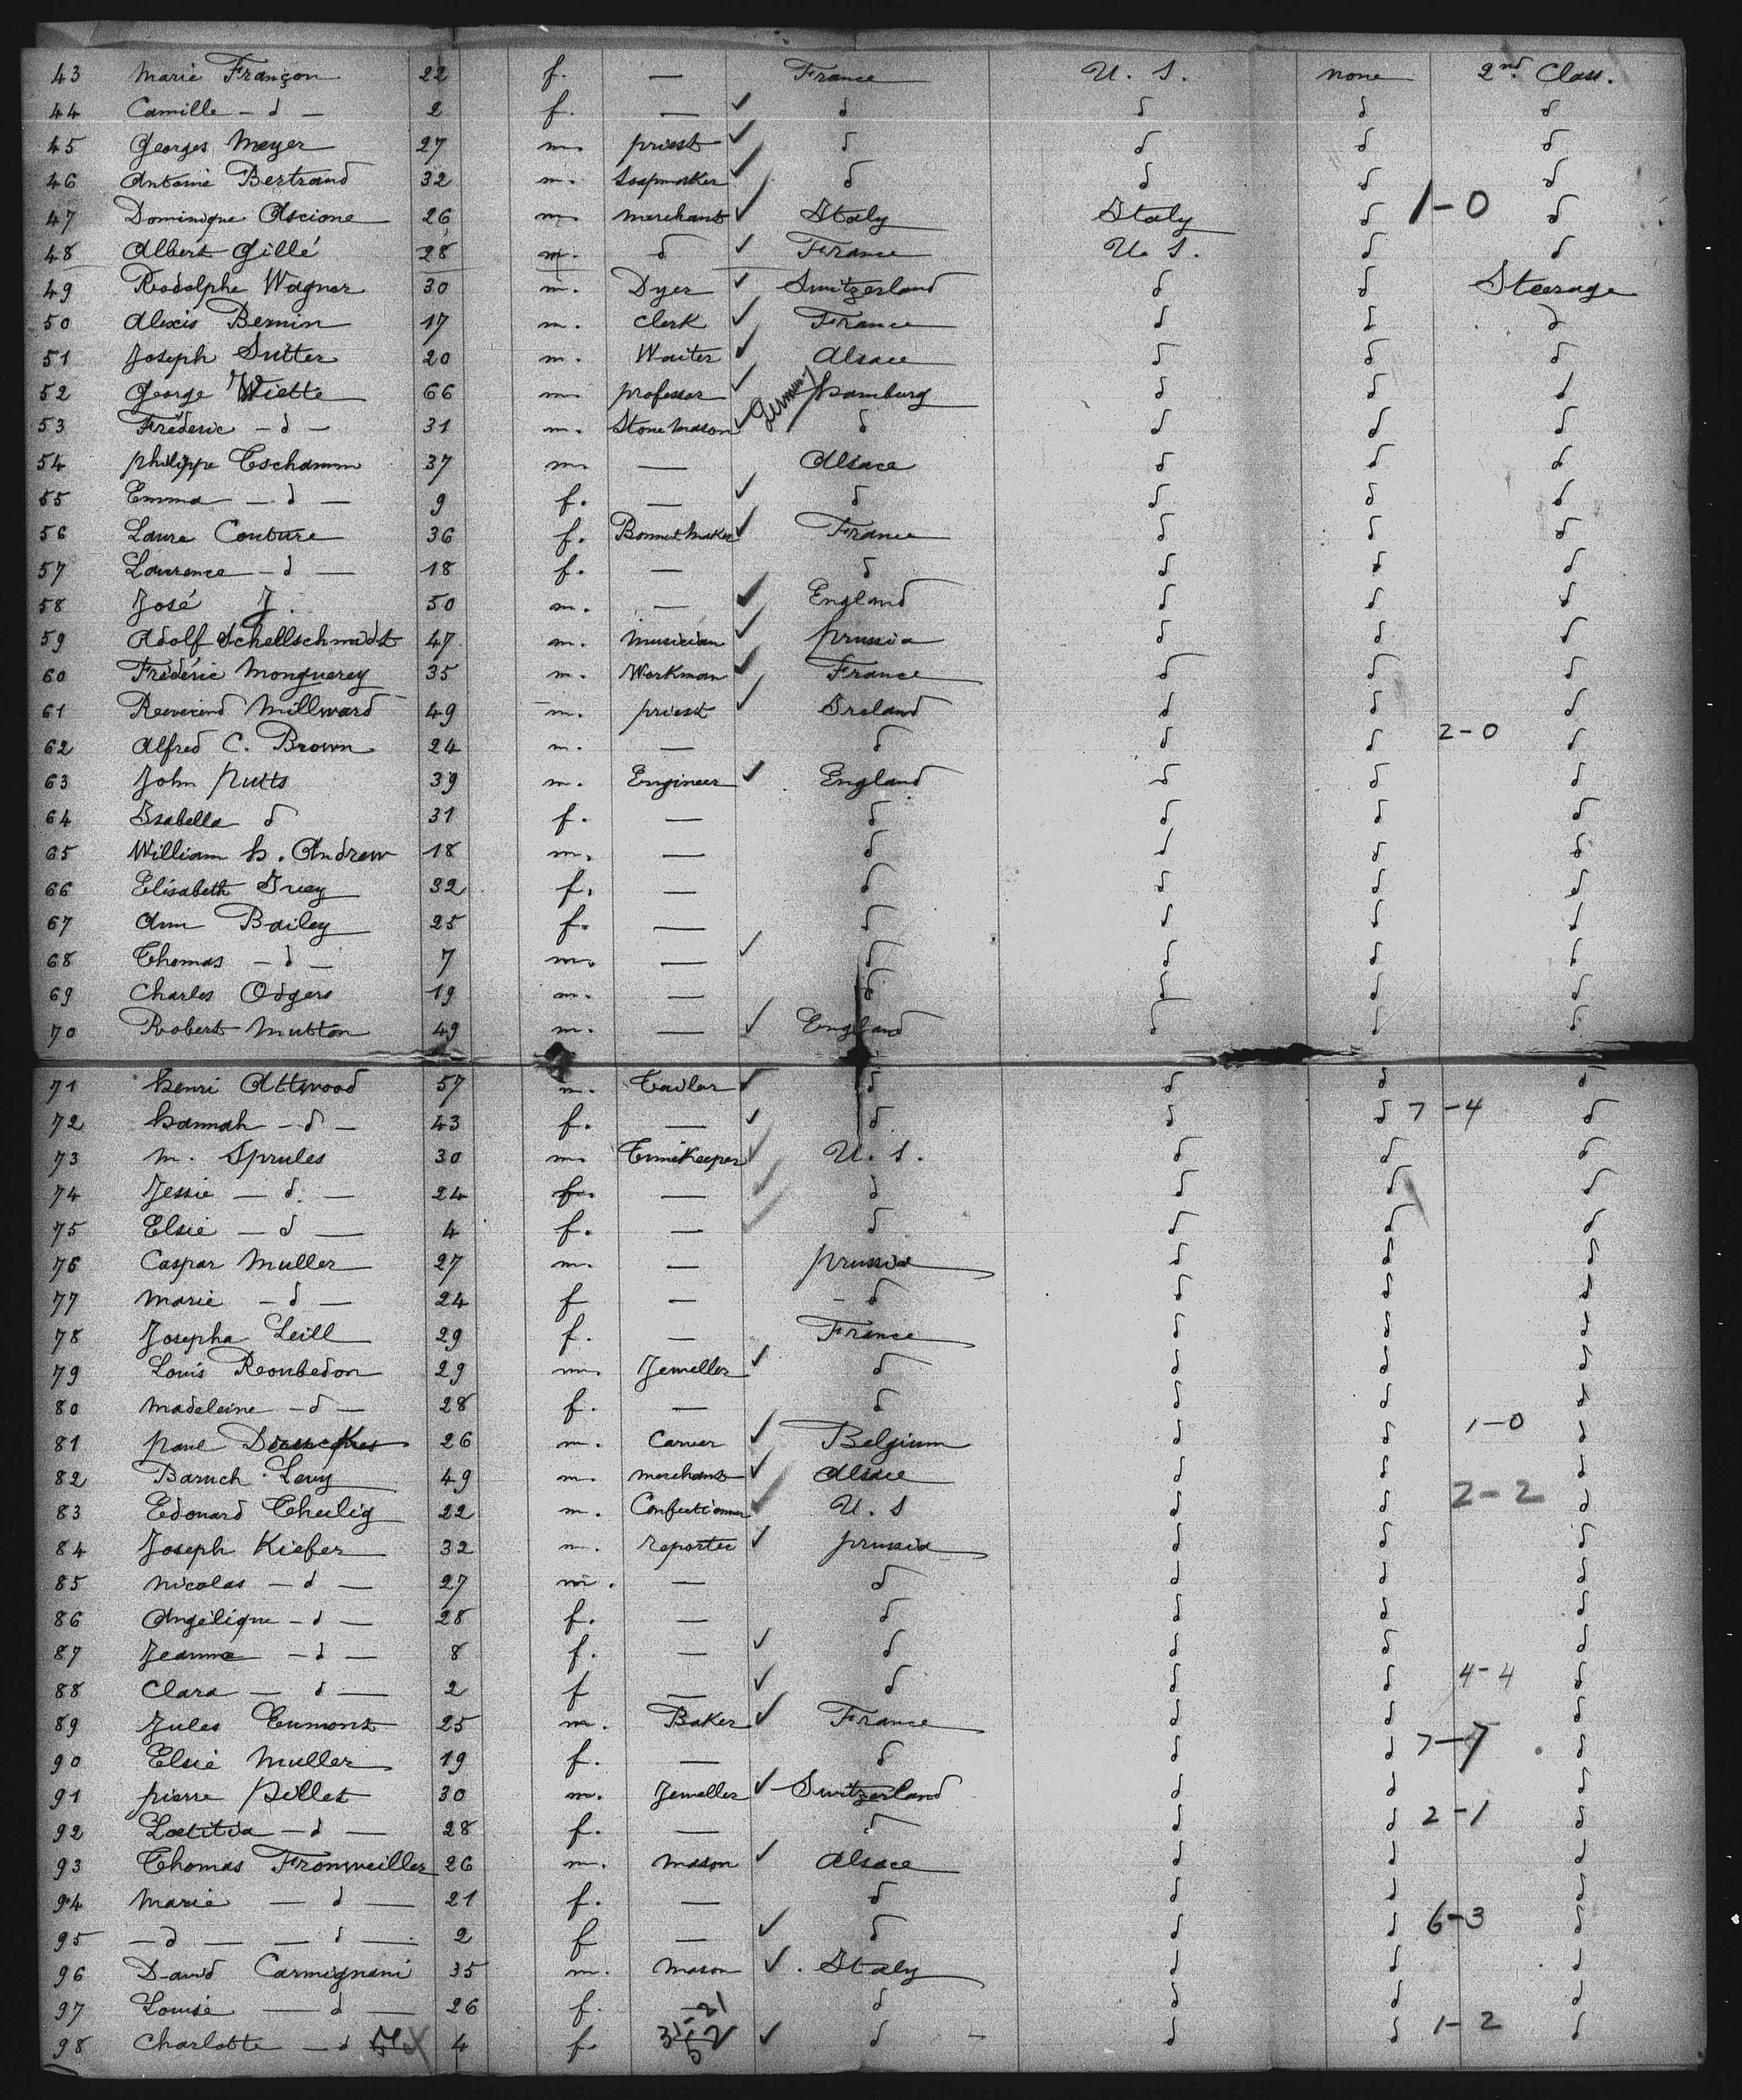 43 Marie Françon 22 f. — France U. S. none 2nd Class.
44 Camille — d — 2 f. — ✓ d d d d
45 Georges Meyer 27 m. priest ✓ d d d d
46 Antoine Bertrand 32 m. Soapmaker ✓ d d d d
47 Dominique Ascione 26 m. merchant ✓ Italy Italy d 1-0 d
48 Albert Gillé 28 m. d ✓ France U. S. d d
49 Rodolphe Wagner 30 m. Dyer ✓ Switzerland d d Steerage
50 Alexis Bernin 17 m. Clerk ✓ France d d d
51 Joseph Sutter 20 m. Waiter ✓ Alsace d d d
52 George Wiette 66 m. professor ✓ Germany Hamburg d d d
53 Fréderic — d — 31 m. Stone mason ✓ d d d d
54 philippe Tschamm 37 m. — Alsace d d d
55 Emma — d — 9 f. — ✓ d d d d
56 Laura Couture 36 f. Bonnet maker ✓ France d d d
57 Laurence — d — 18 f. — d d d d
58 José J. 50 m. — ✓ England d d d
59 Adolf Schellschmidt 47 m. musician ✓ prussia d d d
60 Fréderic Monguerey 35 m. Workman ✓ France d d d
61 Reverend Millward 49 m. priest ✓ Ireland d d d
62 Alfred C. Brown 24 m. — d d d 2-0 d
63 John Putts 39 m. Engineer ✓ England d d d
64 Isabella d 31 f. — d d d d
65 William H. Andrew 18 m. — d d d d
66 Elisabeth Ivey 32 f. — d d d d
67 Ann Bailey 25 f. — d d d d
68 Thomas — d — 7 m. — ✓ d d d d
69 Charles Odgers 19 m. — d d d d
70 Robert Mutton 49 m. — ✓ England d d d
71 Henri Attwood 57 m. Tailor ✓ d d d d
72 Hannah — d — 43 f. — ✓ d d d 7-4 d
73 M. Sprules 30 m. Timekeeper ✓ U. S. d d d
74 Jessie — d. — 24 f. — ✓ d d d d
75 Elsie — d — 4 f. — ✓ d d d d
76 Caspar Muller 27 m. — prussia d d d
77 Marie — d — 24 f — d d d d
78 Josepha Leill 29 f. — France d d d
79 Louis Roubedon 29 m. Jeweller ✓ d d d d
80 Madeleine — d — 28 f. — d d d d
81 paul 26 m. Carver ✓ Belgium d d 1-0 d
82 Baruch Levy 49 m. merchant ✓ Alsace d d d
83 Edouard Theilig 22 m. Confectionner ✓ U. S d d 2-2 d
84 Joseph Kiefer 32 m. reporter ✓ prussia d d d
85 Nicolas — d — 27 m. — d d d d
86 Angélique — d — 28 f. — d d d d
87 Jeanne — d — 8 f. — ✓ d d d d
88 Clara — d — 2 f — ✓ d d d 4-4 d
89 Jules Eumont 25 m. Baker ✓ France d d d
90 Elsie Muller 19 f. — d d d 7-7 d
91 pierre Pillet 30 m. Jeweller ✓ Switzerland d d d
92 Loetitia — d — 28 f. — d d d 2-1 d
93 Thomas Fronweiller 26 m. mason ✓ Alsace d d d
94 Marie — d — 21 f. — d d d d
95 — d — — d — 2 f — ✓ d d d 6-3 d
96 David Carmignani 35 m. mason ✓ Italy d d d
97 Louise — d — 26 f. 21 d d d d
98 Charlotte — d 4 f. ✓ d d d 1-2 d